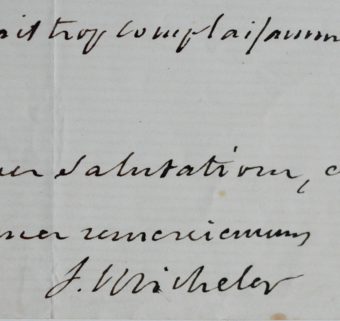 trop complaisamm
salutations,
mes remerciemens
J. Michelet